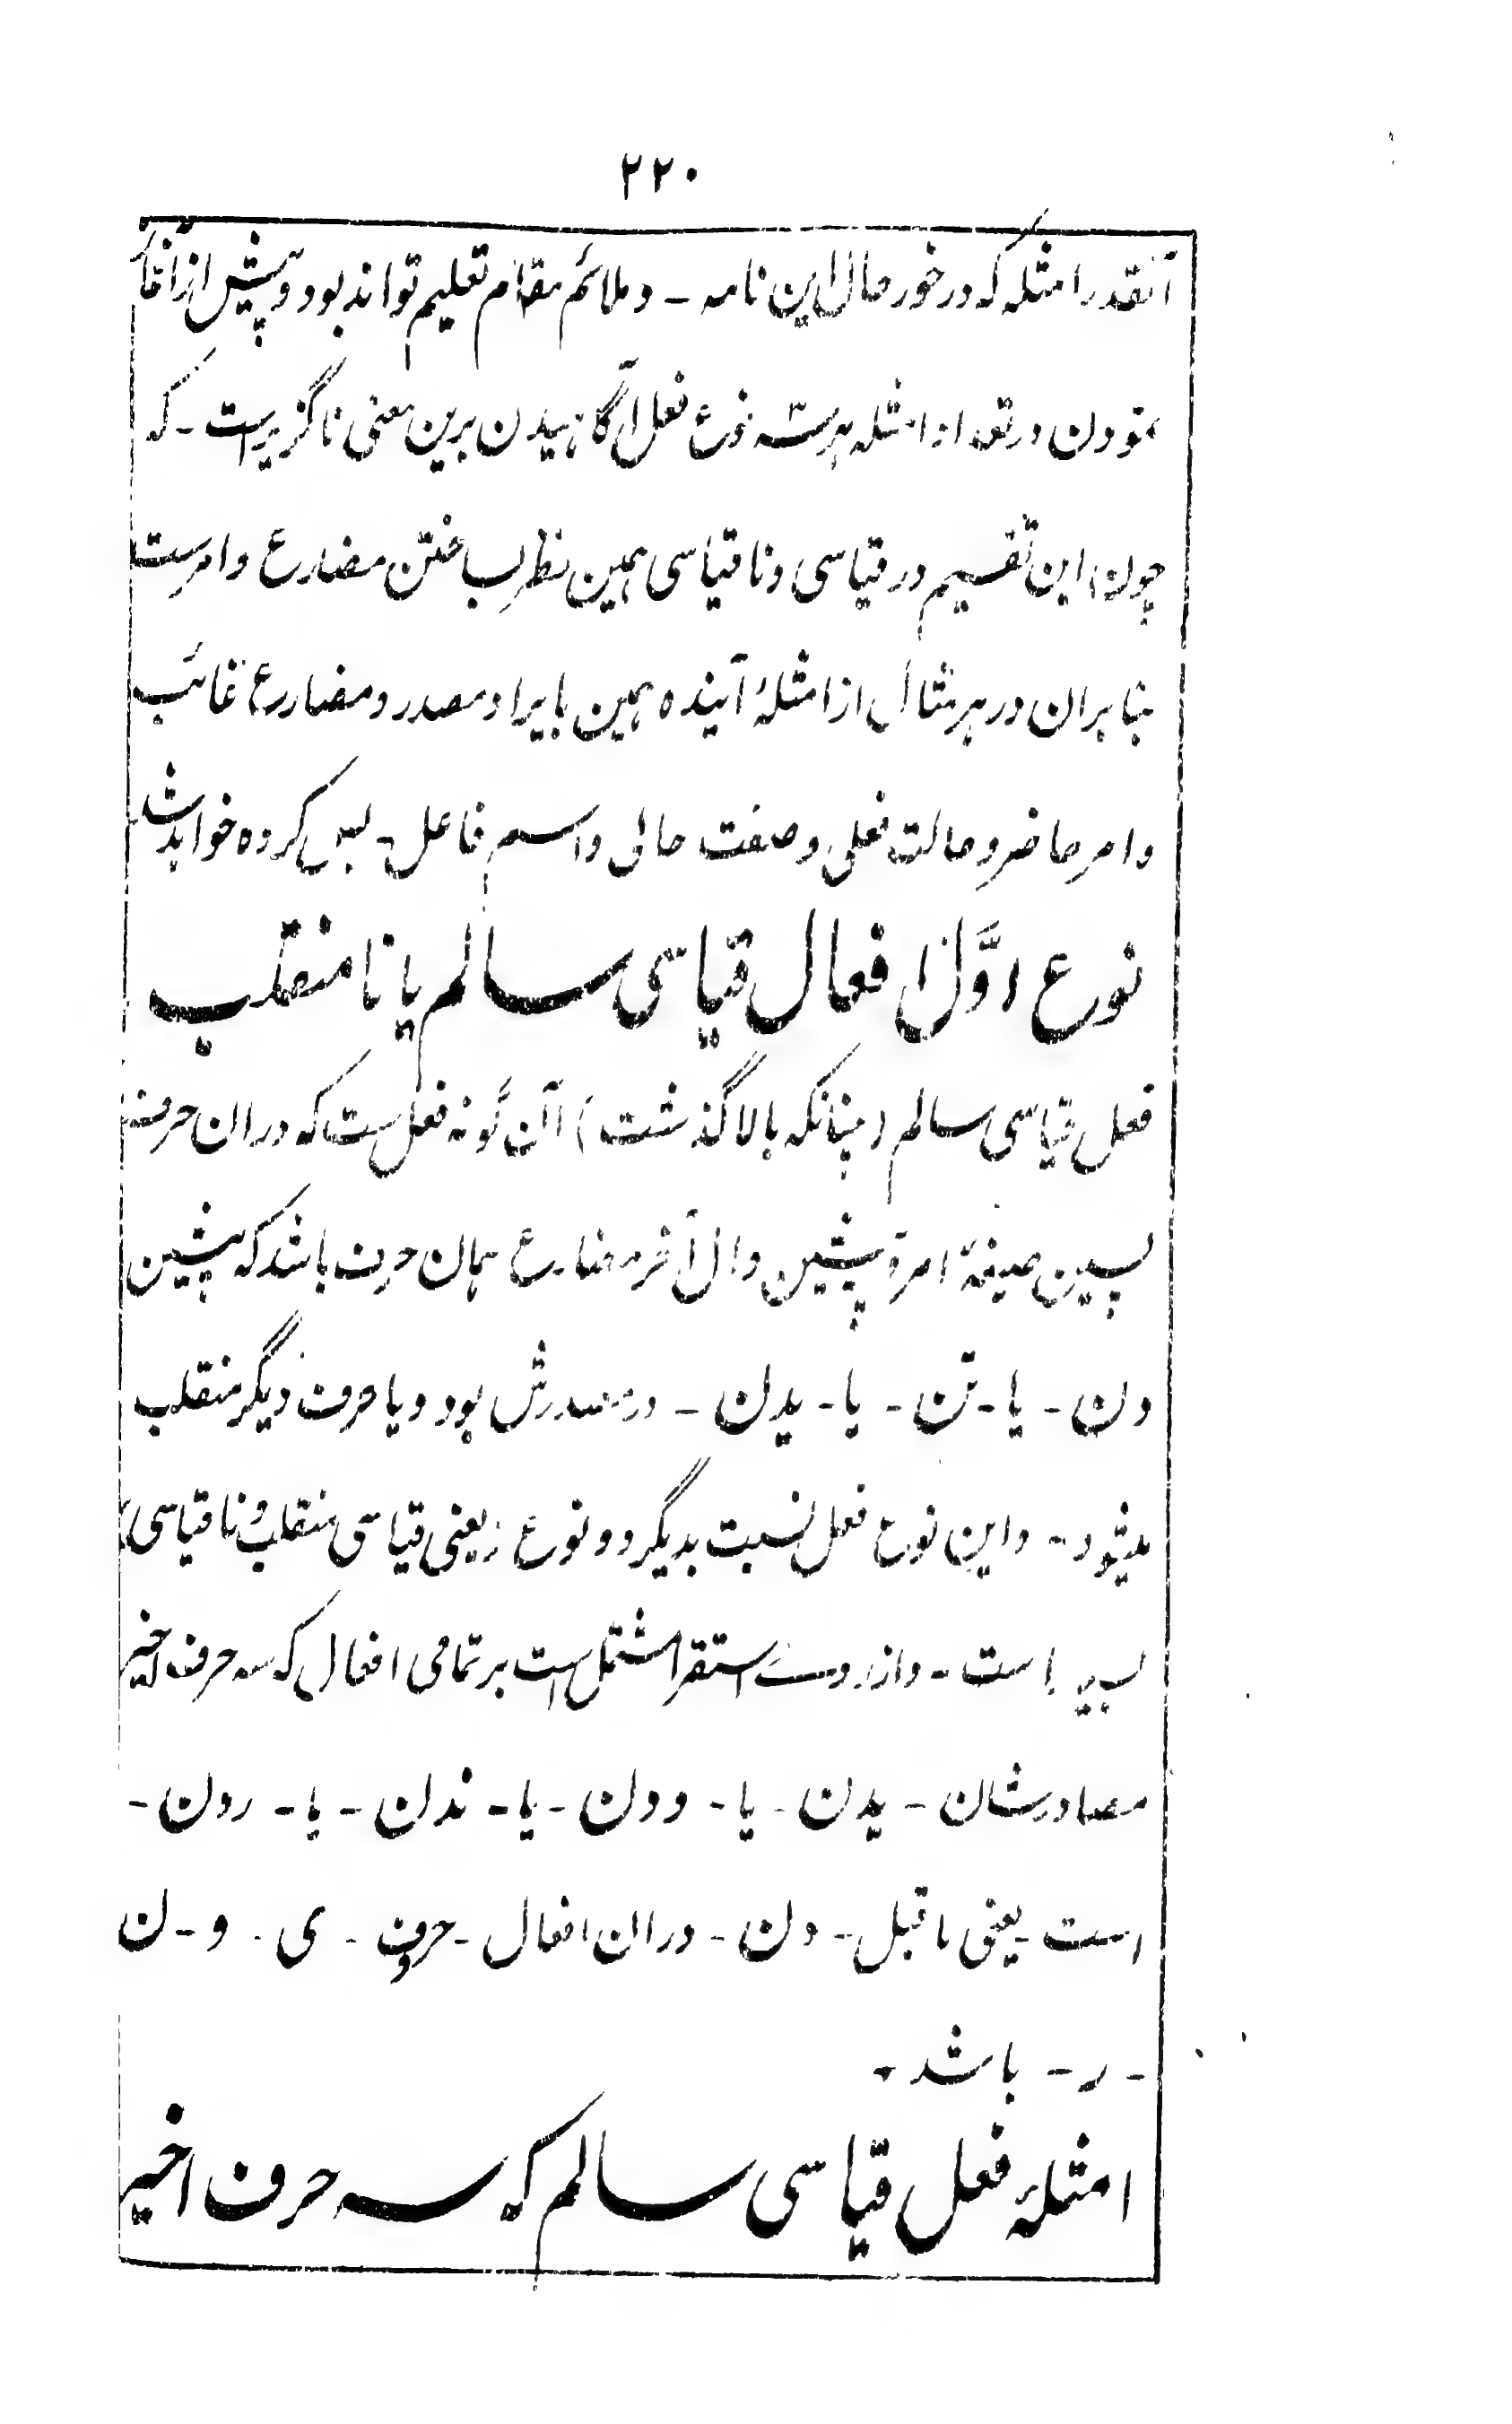 ۲۲۰
آنقدر امثله که در خور حال این نامه - و ملائم مقام تعلیم تواند بود و پیش از آغاز
نمودن در تعداد امثله هر سه نوع فعل آگاهیدن برین معنی ناگزیر است - که
چون این تقسیم در قیاسی و ناقیاسی همین نظر بساختن مضارع و امرست
بنابران در هر مثال از امثلهٔ آینده همین بایراد مصدر و مضارع غائب
و امر حاضر و حالت فعلی و صفت حالی و اسم فاعل - بس کرده خواهد شد
نوع اوّل افعال قیاسی سالم یا نامنقلب
فعل قیاسی سالم (چنانکه بالا گذشت) آن گونه فعل ست که در ان حرف
پسین صیغهٔ امر و پیشین دال آخر مضارع همان حرف باشد که پیشین
دن - یا - تن - یا - یدن - در مصدرش بود و یا حرف دیگر منقلب
میشود - و این نوع فعل نسبت بدیگر دو نوع (یعنی قیاسی منقلب و ناقیاسی)
بسیار است - و از روے استقرا مشتمل است بر تمامی افعال که سه حرف اخیر
مصادرشان - یدن - یا - ودن - یا - ندن - یا - ردن -
است - یعنی ماقبل - دن - در ان افعال - حروف - ی - و - ن
- ر - باشد -
امثلهٔ فعل قیاسی سالم که سه حرف اخیر